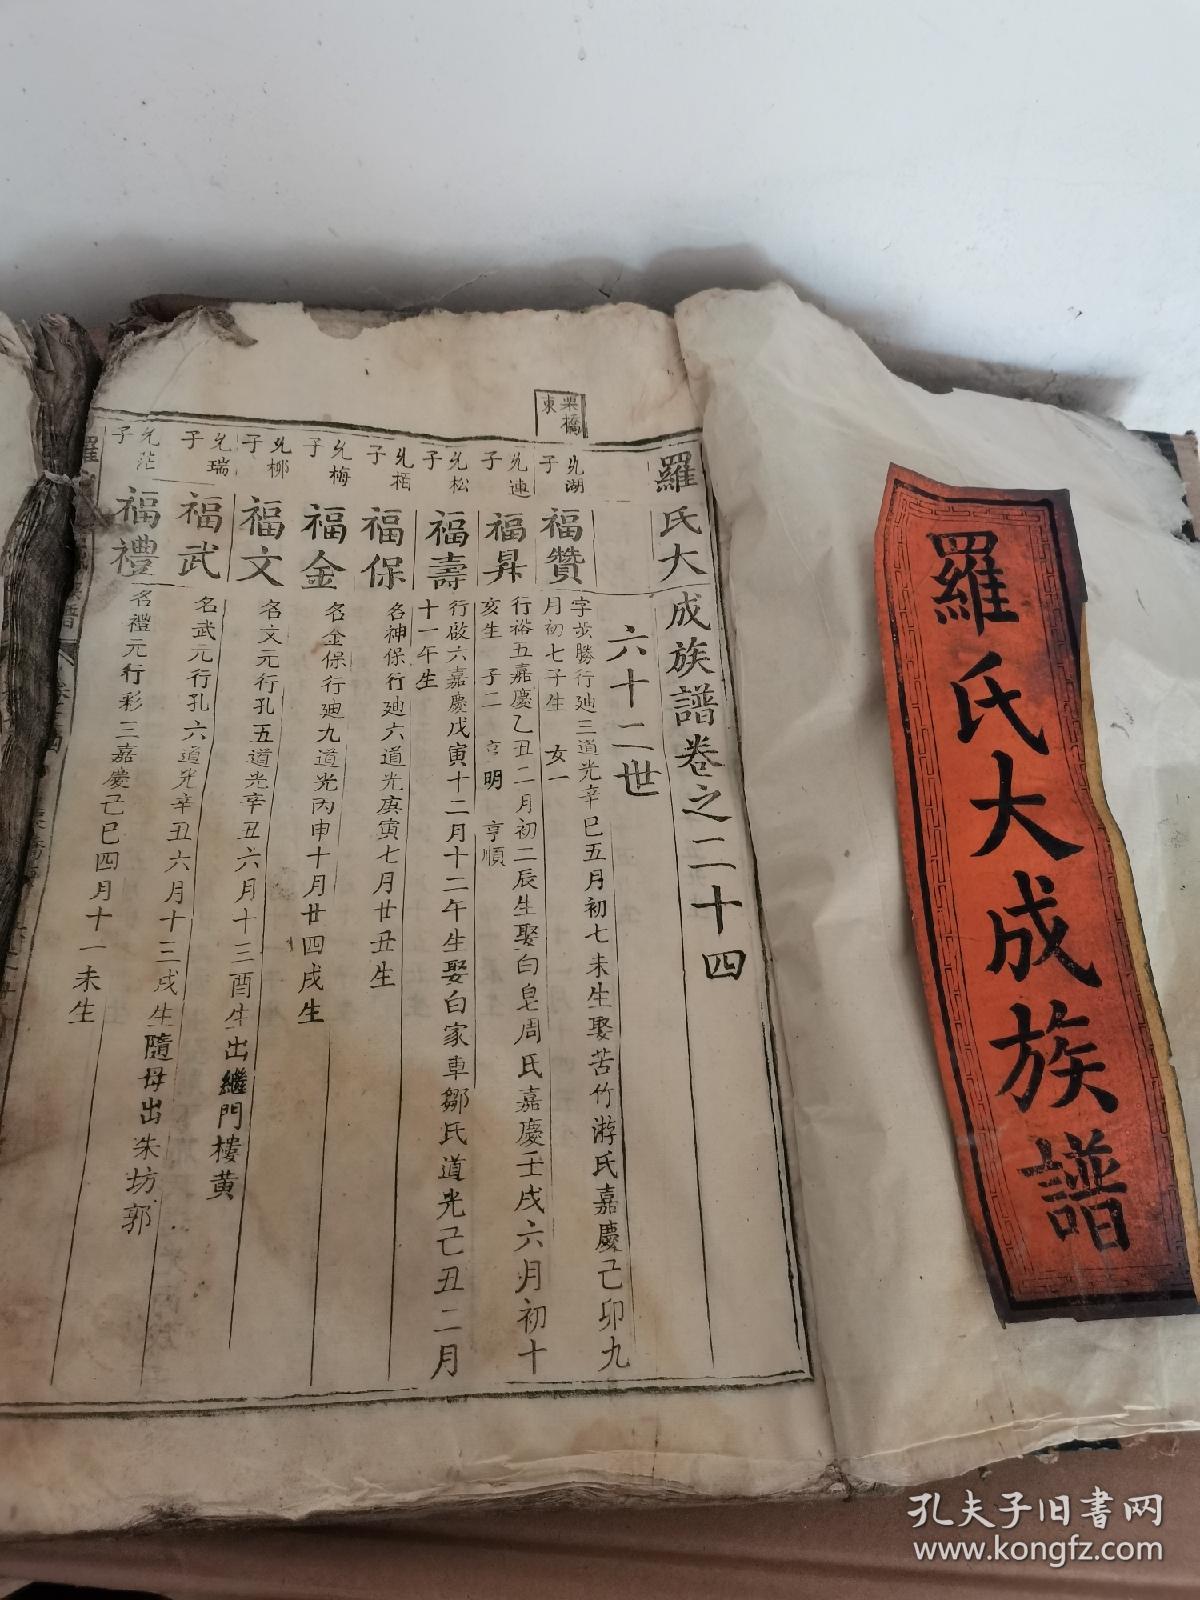 羅氏大成族譜
栗橋
東
羅氏大成族譜卷之二十四
六十二世
允湖子
福贊
字 勝行廸三道光辛巳五月初七未生娶苦竹游氏嘉慶己卯九
月初七子生 女一
允連子
福昇
行裕五嘉慶乙丑二月初二辰生娶白皂周氏嘉慶壬戌六月初十
亥生 子二 亨明 亨順
允松子
福壽
行啟六嘉慶戊寅十二月十二午生娶白家車鄒氏道光己丑二月
十一午生
允栢子
福保
名神保行廸六道光庚寅七月廿丑生
允梅子
福金
名金保行廸九道光丙申十月廿四戌生
允柳子
福文
名文元行孔五道光辛丑六月十三酉生出繼門樓黃
允瑞子
福武
名武元行孔六道光辛丑六月十三戌生隨母出朱坊郭
子
福禮
名禮元行彩三嘉慶己巳四月十一未生
羅
孔夫子旧书网
www.kongfz.com